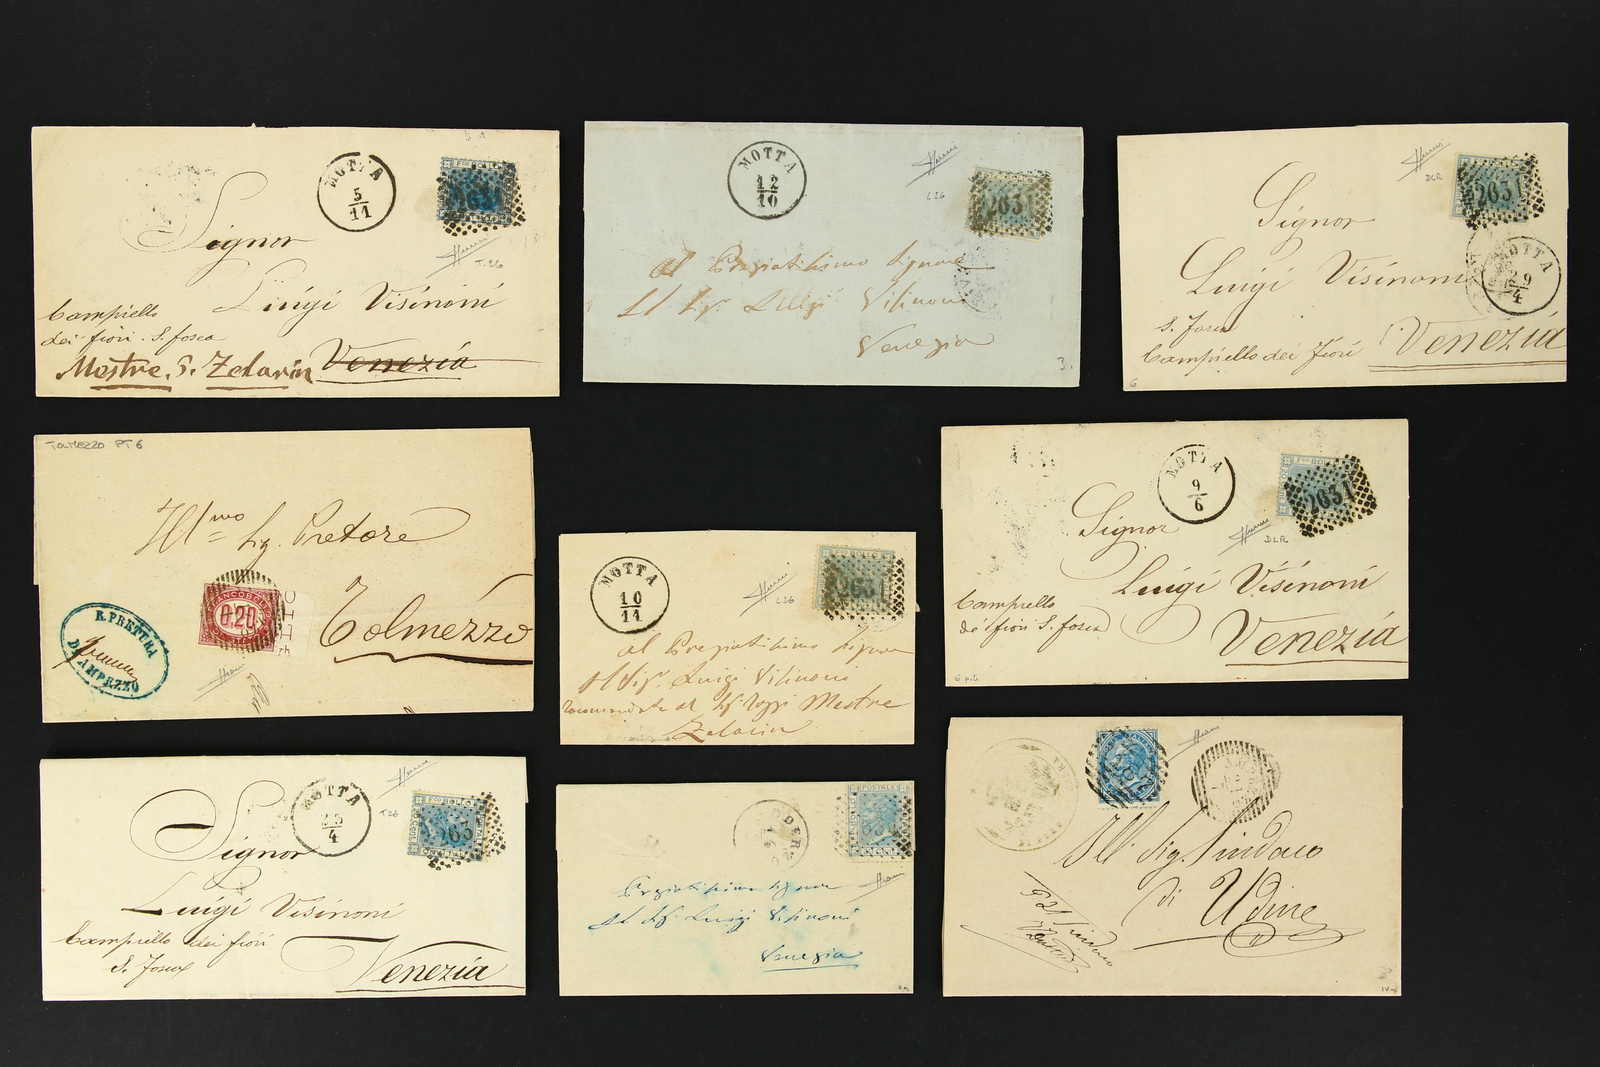 MOTTA
5
11
Signor
Luigi Visinoni
Campiello
dei fiori. S. fosca
Mestre. S. Zelarin Venezia
T.26
MOTTA
12
10
2631
L26
al Pregiatissimo Signore
Il Sigr. Luigi Visinoni
Venezia
3.
2631
DLR
MOTTA
29
4
Signor
Luigi Visinoni
S. Fosca
Campiello dei Fiori Venezia
6
TOLMEZZO PT 6
Ill.mo Sig. Pretore
Tolmezzo
FRANCOBOLLO
0.20
R. PRETURA
DI AMPEZZO
MOTTA
10
11
2631
L26
al Pregiatissimo Signore
Il Sigr. Luigi Visinoni
raccomandata al Sigr Tozzi Mestre
Zelarin
MOTTA
9
6
2631
DLR
Signor
Luigi Visinoni
Campiello
dei fiori S. fosca
Venezia
MOTTA
25
4
263
T26
Signor
Luigi Visinoni
Campiello dei fiori
S. Fosca
Venezia
POSTALE
Pregiatissimo Signore
Il Sigr. Luigi Visinoni
Venezia
Ill. Sig. Sindaco
di Udine